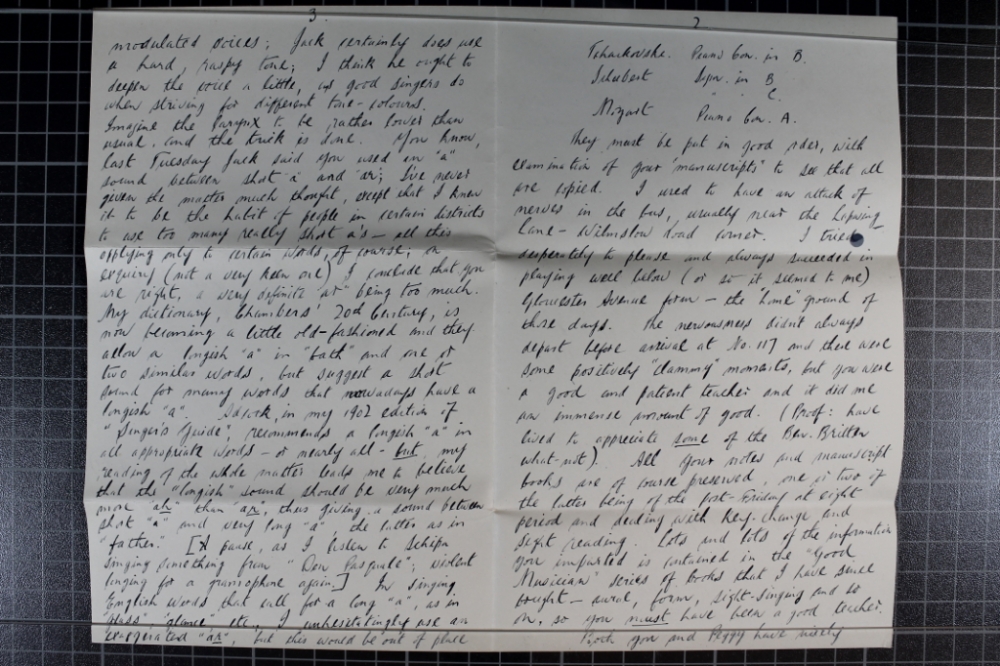 2
Tchaikovske. Piano Con. in B.
Schubert Sym. in B
" " C.
Mozart Piano Con. A.
They must be put in good order, with
examination of your "manuscripts" to see that all
are copied. I used to have an attack of
nerves in the bus, usually near the Lapwing
Lane - Wilmslow Road corner. I tried
desperately to please and always succeeded in
playing well below (or so it seemed to me)
Gloucester Avenue form - the "home" ground of
those days. The nervousness didn't always
depart before arrival at No. 117 and there were
some positively "clammy" moments, but you were
a good and patient teacher and it did me
an immense amount of good. (Proof: have
lived to appreciate some of the Ben. Britten
what-not). All your notes and manuscript
books are of course preserved, one or two of
the latter being of the post-Friday at eight
period and dealing with key-change and
sight reading. Lots and lots of the information
you imparted is contained in the "Good
Musician" series of books that I have since
bought - aural, form, sight-singing and so
on, so you must have been a good teacher.
Both you and Peggy have nicely
3.
modulated voices; Jack certainly does use
a hard, raspy tone; I think he ought to
deepen the voice a little, as good singers do
when striving for different tone-colours.
Imagine the larynx to be rather lower than
usual, and the trick is done. You know,
last Tuesday Jack said you used an "a"
sound between short "a" and "ar"; I've never
given the matter much thought, except that I knew
it to be the habit of people in certain districts
to use too many really short a's - all this
applying only to certain words, of course; on
enquiry (not a very keen one) I conclude that you
are right, a very definite "ar" being too much.
My dictionary, Chambers' 20th Century, is
now becoming a little old-fashioned and they
allow a longish "a" in "bath" and one or
two similar words, but suggest a short
sound for many words that nowadays have a
longish "a". in my 1902 edition of
"Singer's Guide", recommends a longish "a" in
all appropriate words - or nearly all - but my
reading of the whole matter leads me to believe
that this "longish" sound should be very much
more "ah" than "ar", thus giving a sound between
short "a" and very long "a" the latter as in
"father." [A pause, as I listen to Schipa
singing something from "Don Pasquale"; violent
longing for a gramophone again.] In singing
English words that call for a long "a", as in
"pass" "glance" etc., I unhesitatingly use an
exaggerated "ah", but this would be out of place